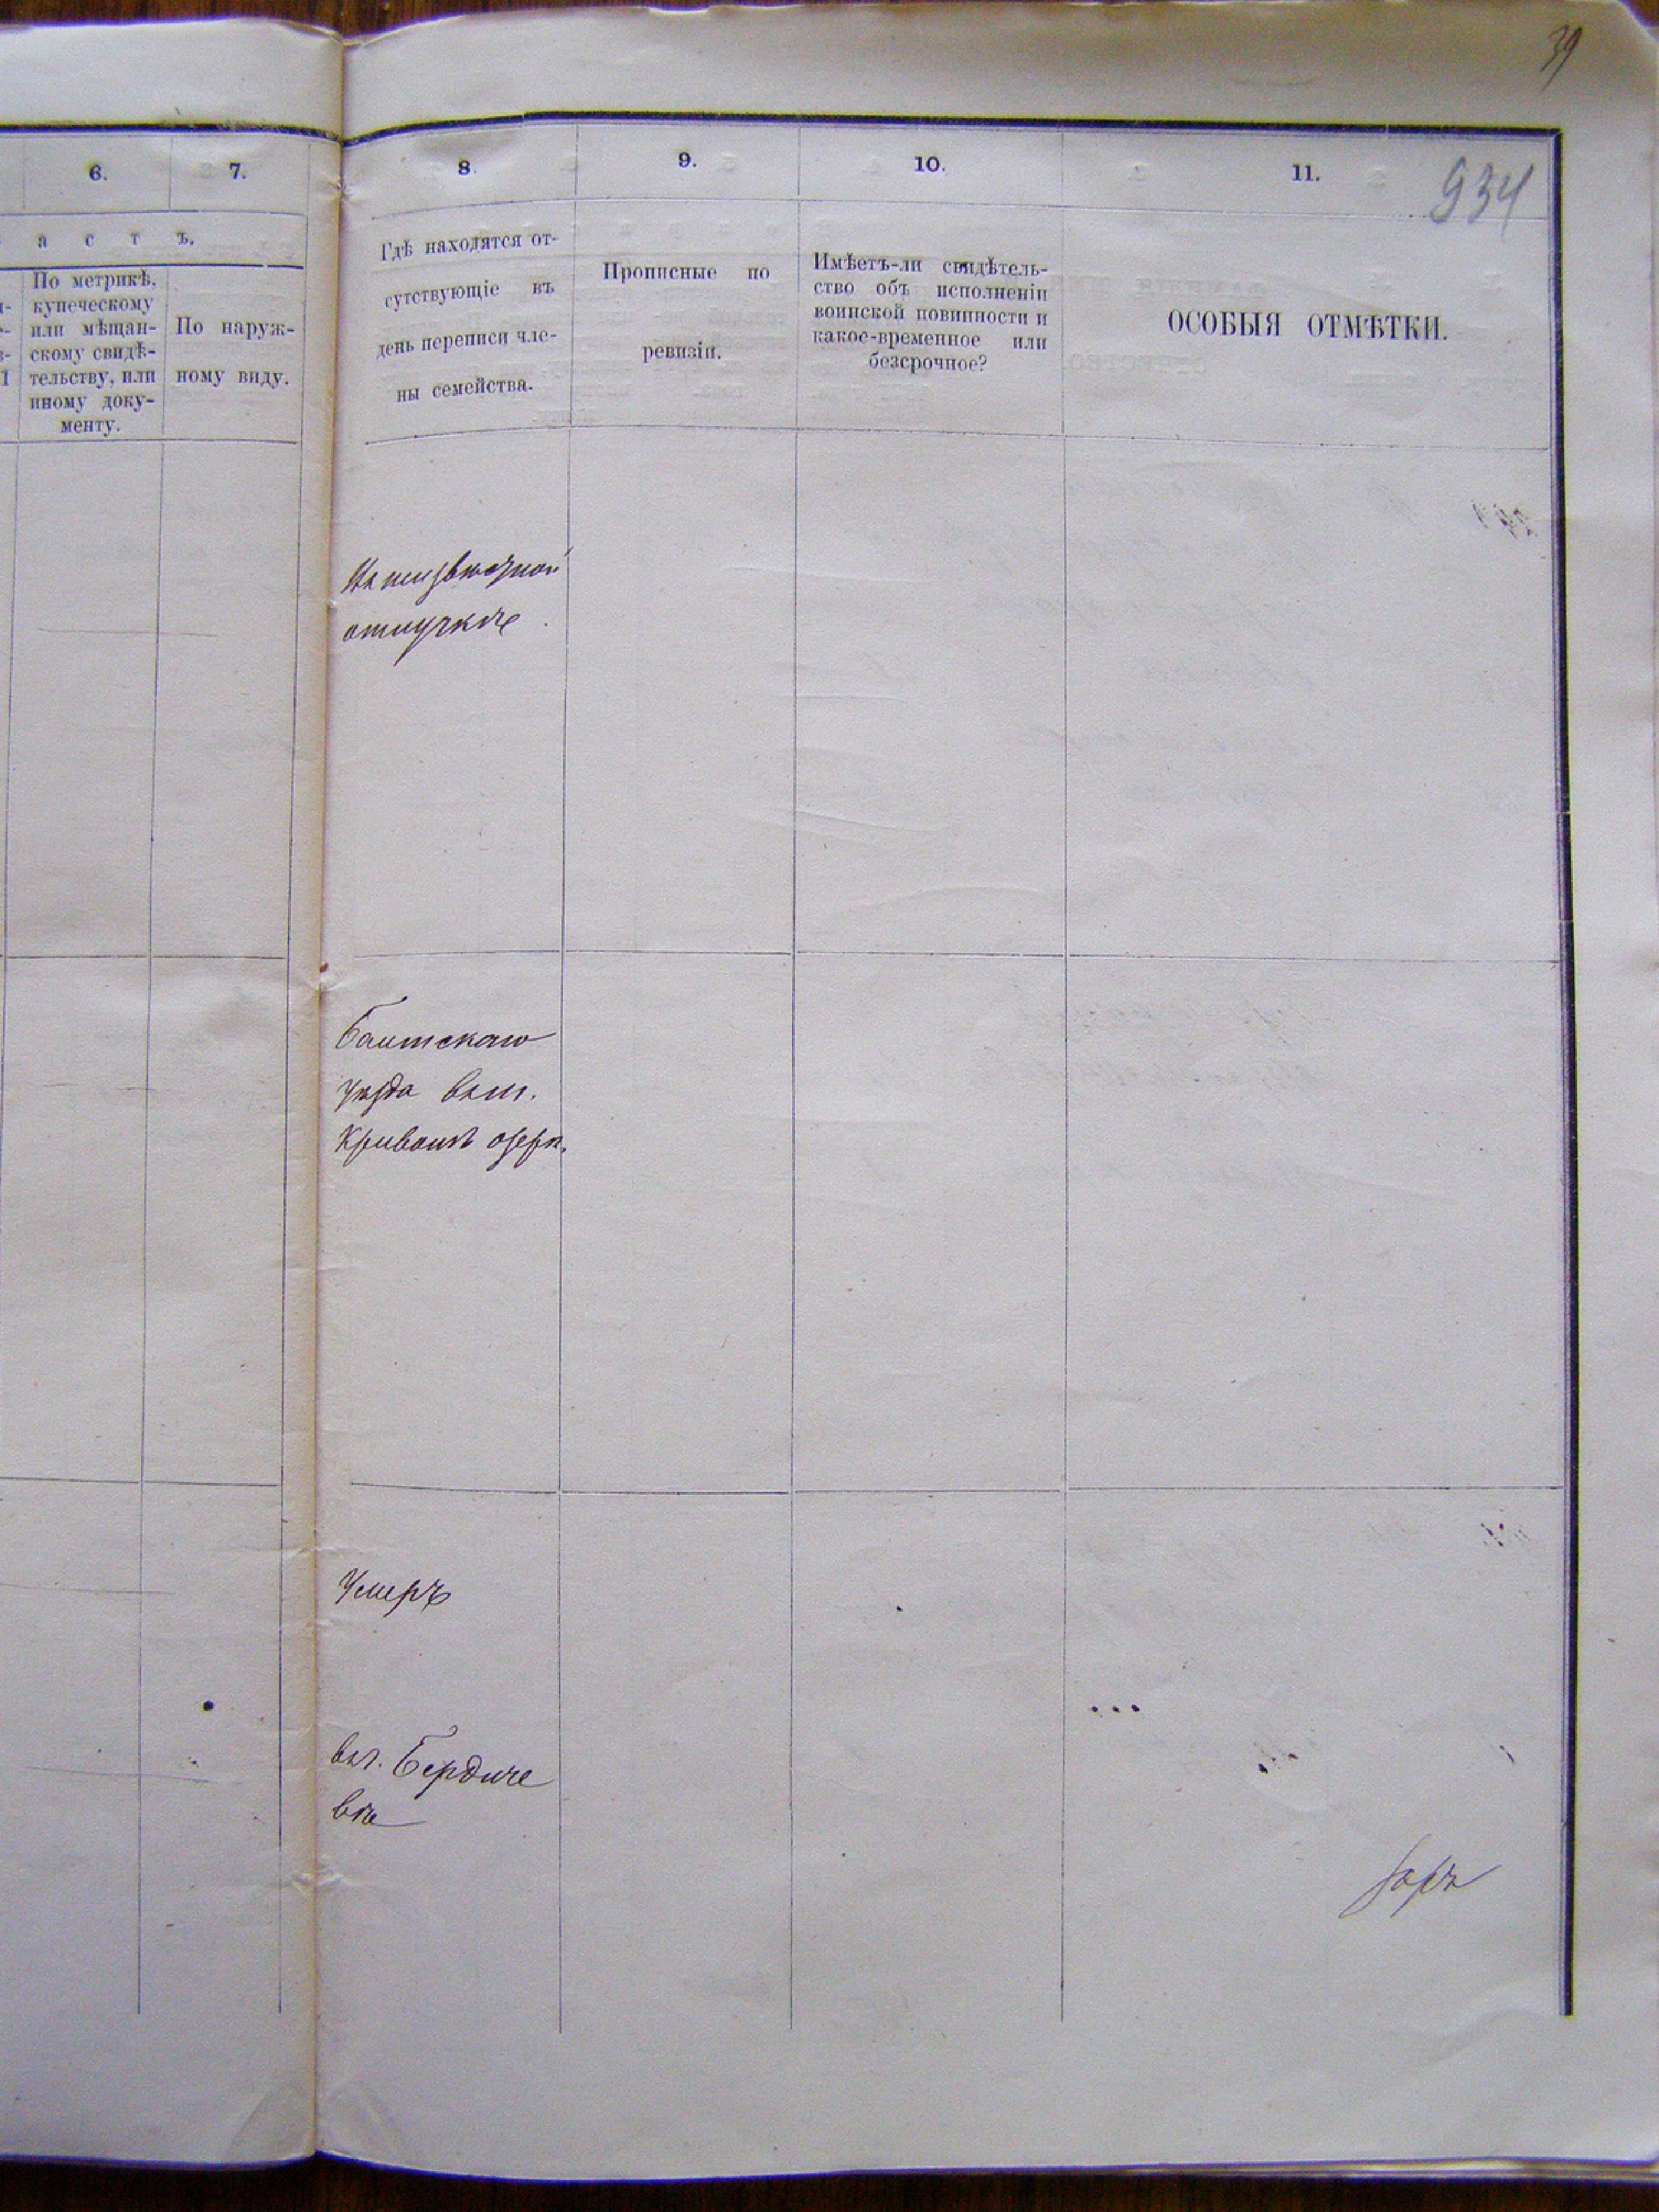 39
6.
7.
8.
9.
10.
11.
934
а с т ъ.
По метрикѣ,
купеческому
или мѣщан-
скому свидѣ-
тельству, или
иному доку-
менту.
По наруж-
ному виду.
Гдѣ находятся от-
сутствующіе въ
день переписи чле-
ны семейства.
Прописные по
ревизіи.
Имѣетъ-ли свидѣтель-
ство объ исполненіи
воинской повинности и
какое-временное или
безсрочное?
ОСОБЫЯ ОТМѢТКИ.
отлучкѣ
Балтскаго
уѣзда вм.
Кривомъ озерѣ.
Умеръ
вг. Бердиче
вѣ